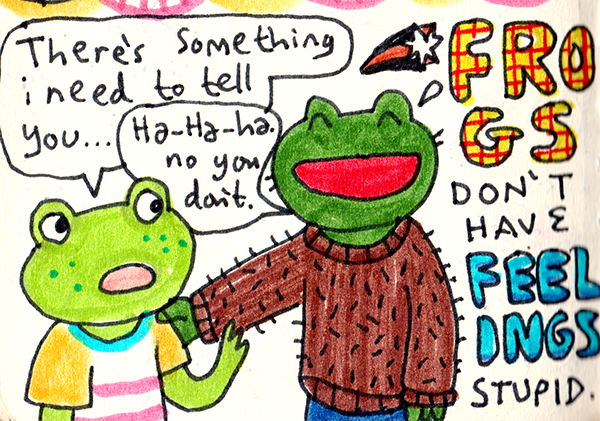 There's something
i need to tell
you...
Ha-Ha-ha.
no you
don't.
FRO
GS
DON'T
HAVE
FEEL
INGS
STUPID.